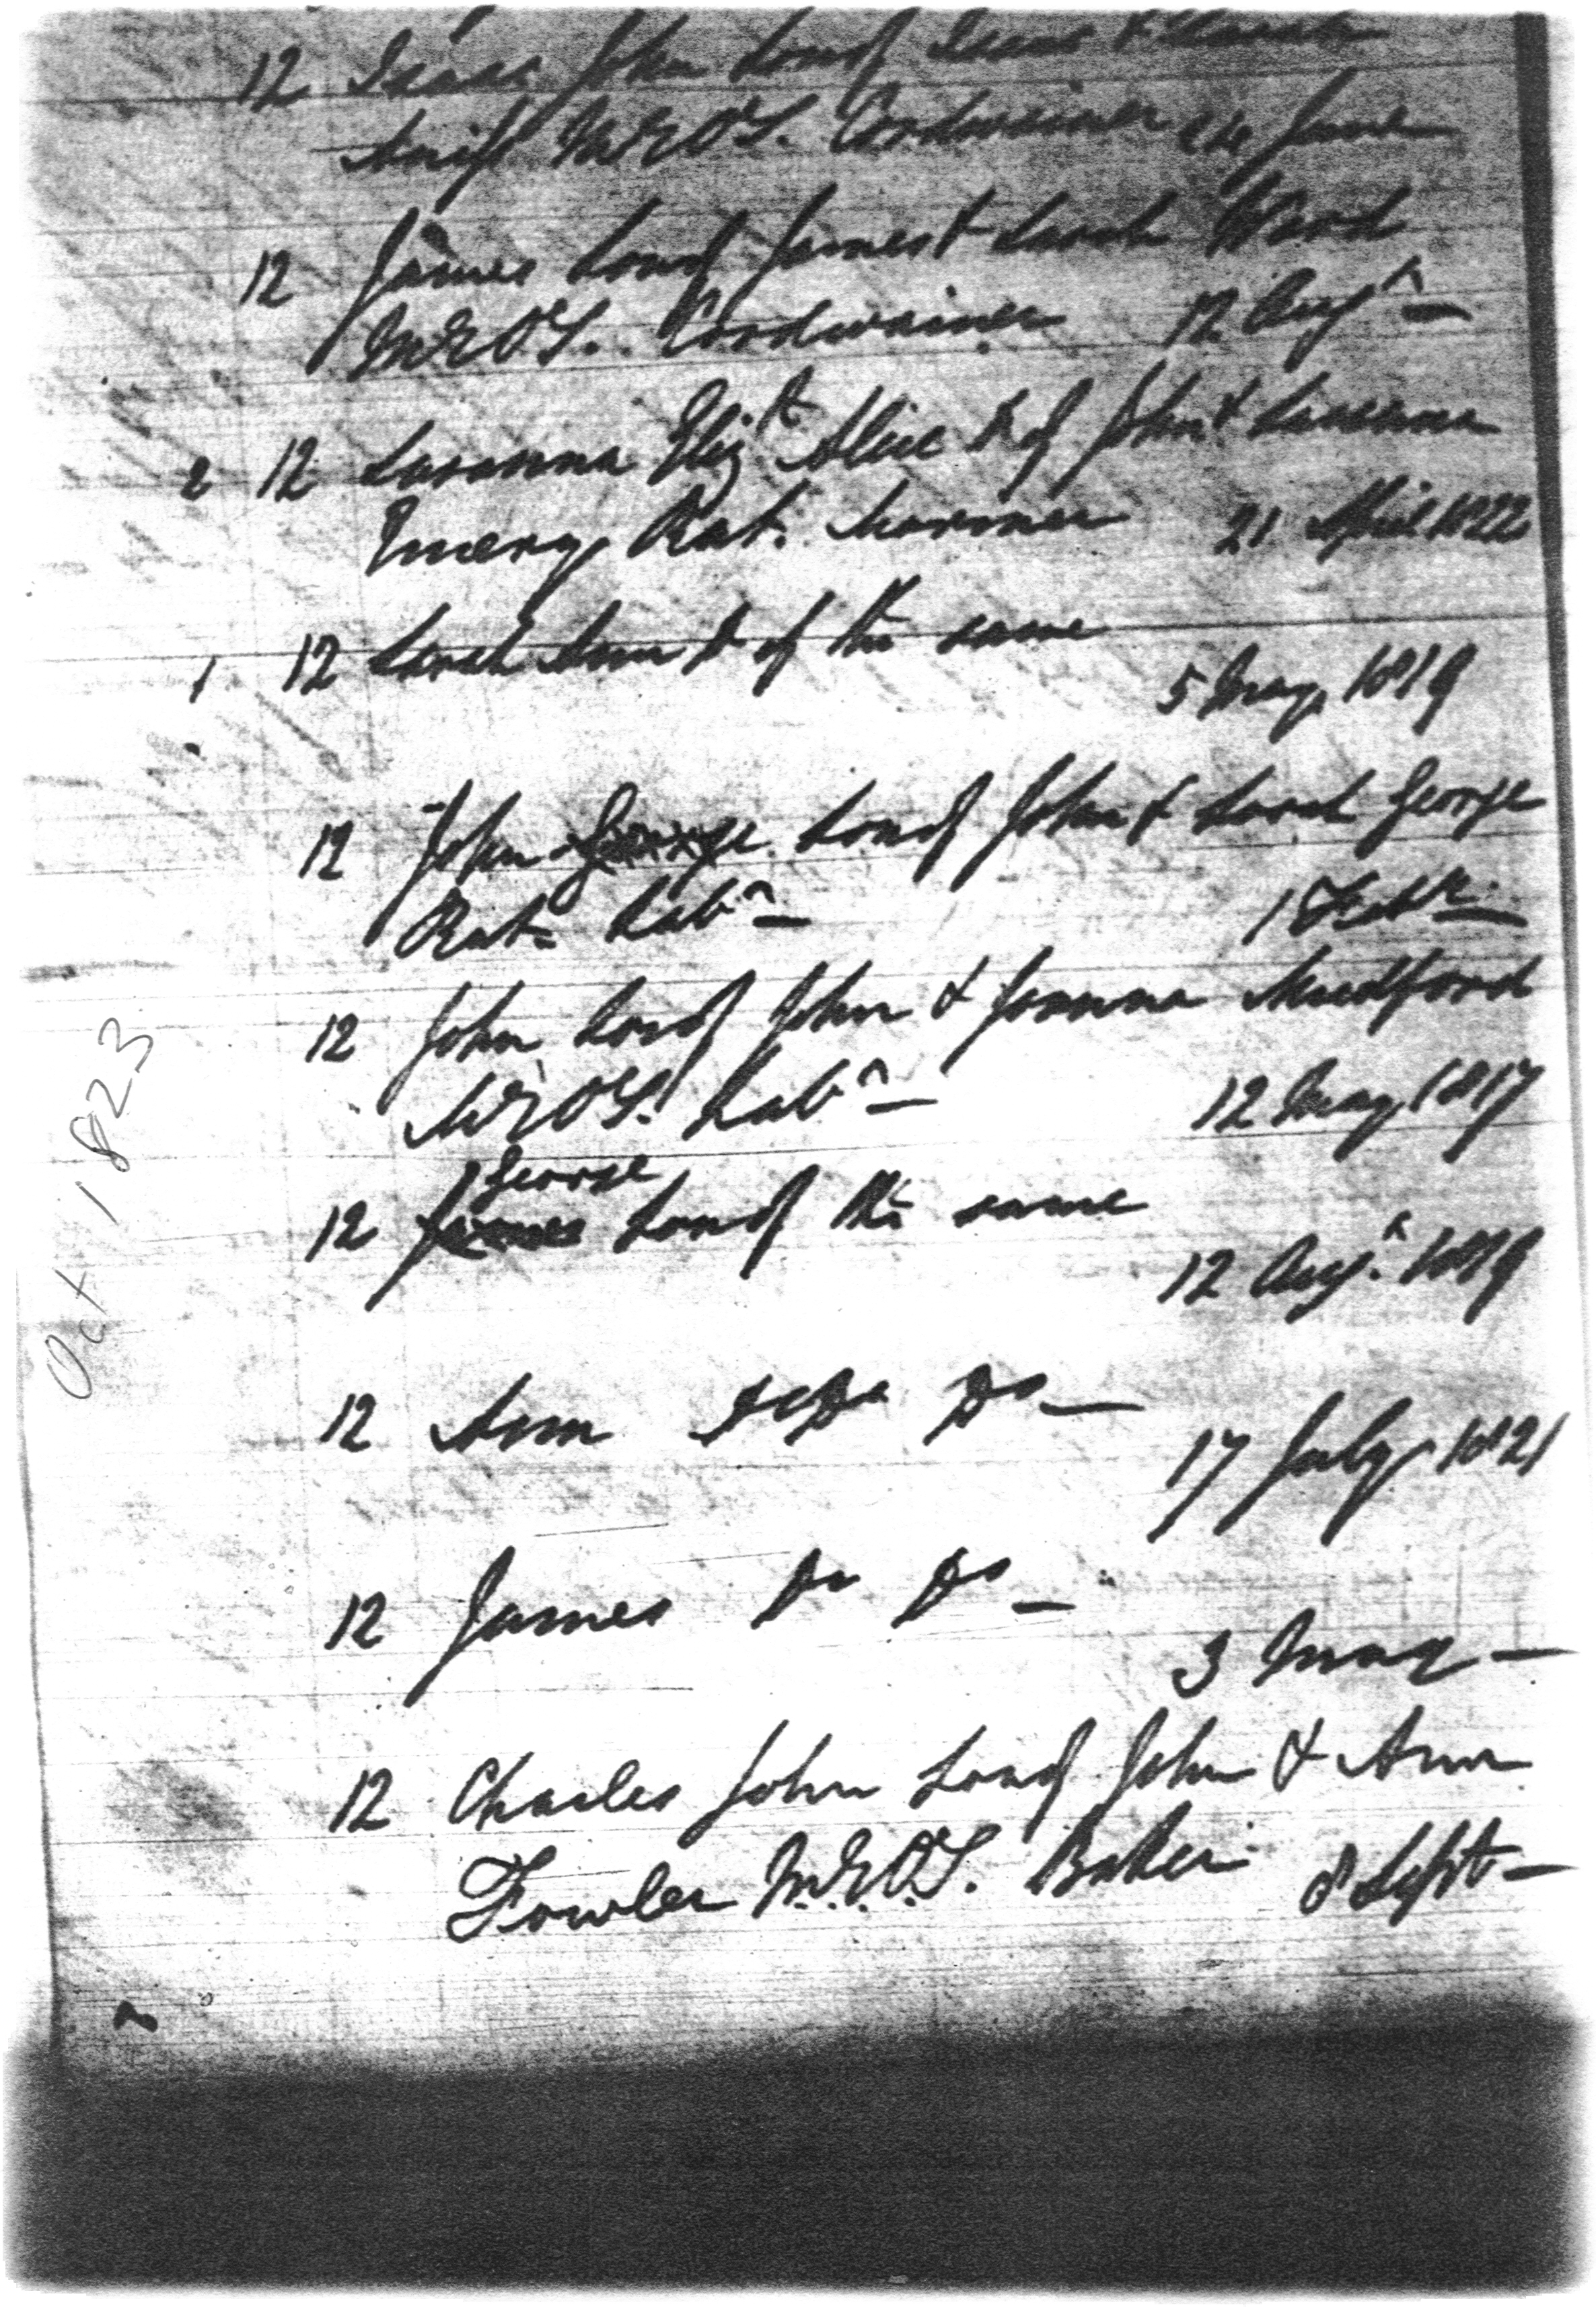 12 Isaac John Son of Isaac & Sarah
Swift M.E.O.T. Cordwainer 24 June
12 James Son of James & Sarah Ward
M.E.O.T. Cordwainer 12 Augt
2 12 Susanna Elizth Alice D of John & Susanna
Emery Rat. Mariner 21 April 1822
1 12 Sarah Ann D of the same
5 May 1819
12 John George Son of John & Sarah George
Rat. Labr 1 Febr
12 John Son of John & Joanna Mudford
M.E.O.T. Labr 12 May 1817
George
12 James Son of the same
12 Augt 1819
12 Ann Do
17 July 1821
12 James Do Do
3 May
12 Charles John Son of John & Ann
Fowler M.E.O.T. Baker 8 Sept
Oct 1823